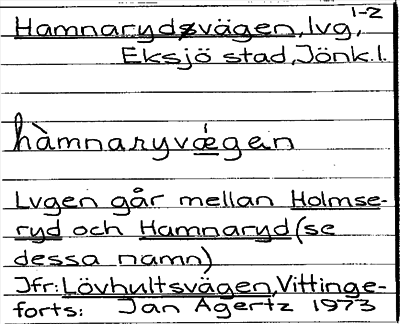 1-2
Hamnarydsvägen, lvg,
Eksjö stad, Jönk.l.
hàmnaryvǽgan
Lvgen går mellan Holmse-
ryd och Hamnaryd (se
dessa namn)
Jfr: Lövhultsvägen, Vittinge-
forts: Jan Agertz 1973